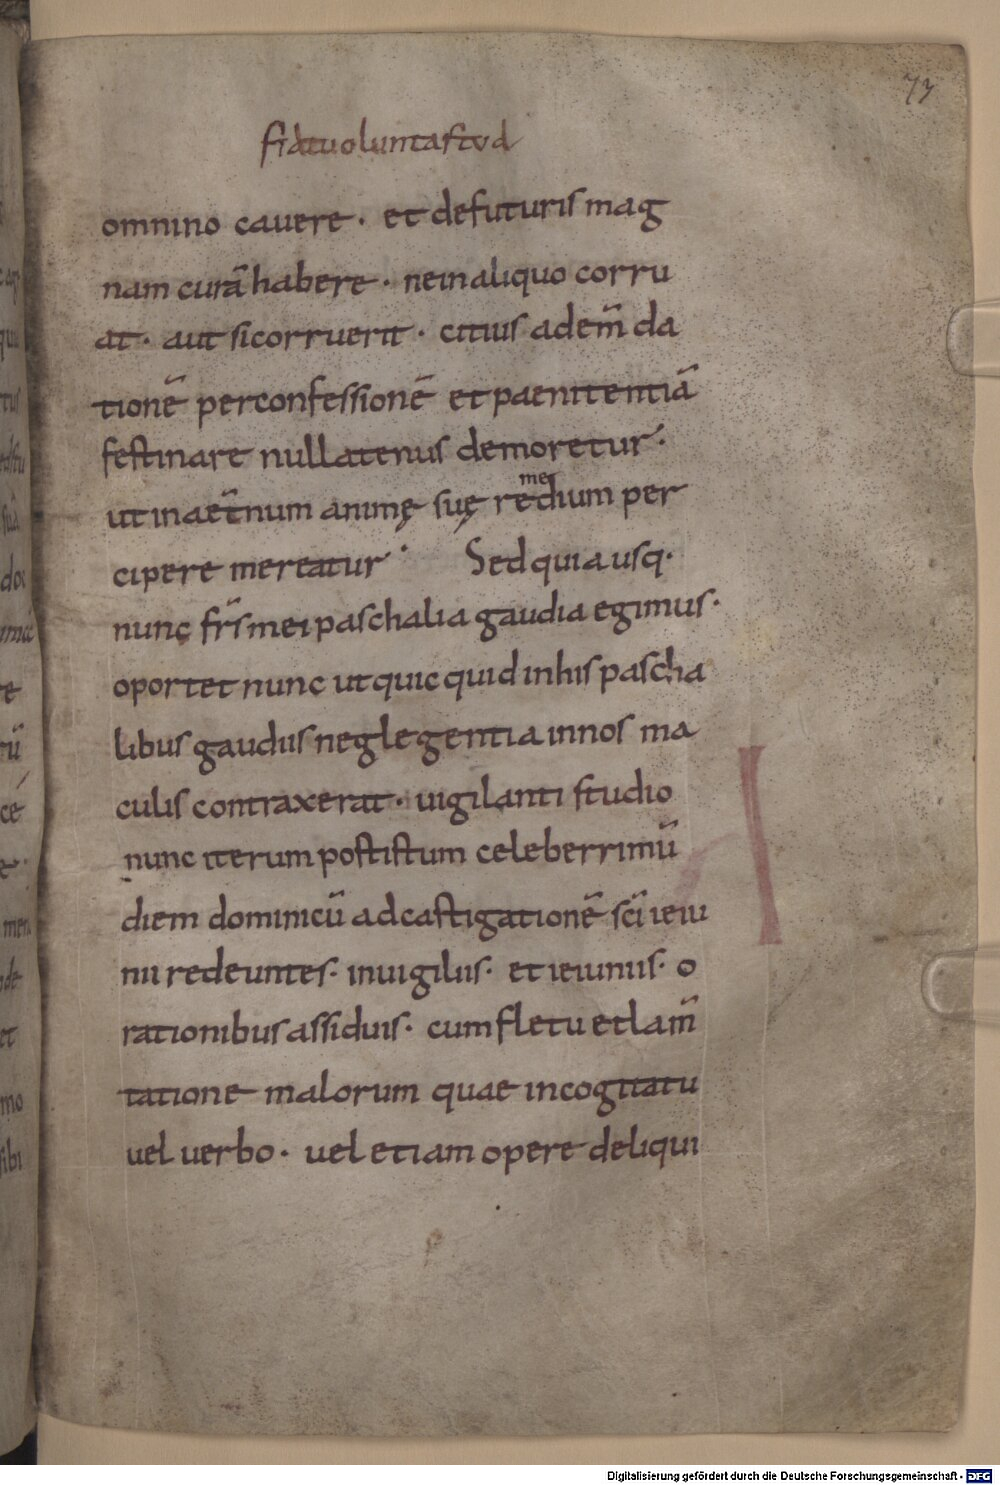 73
fiat uoluntas tua
omnino cauere · et defuturis mag
nam curā habere · nein aliquo corru
at · aut sicorruerit · citius adem̄ da
tionē perconfessionē et paenitentiā
festinare nullatenus demoretur ·
ut in aet̄num animę suę remedium per
cipere mereatur · Sed quia usq·
nunc fr̄s mei paschalia gaudia egimus ·
oportet nunc ut quic quid in his pascha
libus gaudiis neglegentia in nos ma
culis contraxerat · uigilanti studio
nunc iterum post istum celeberrimū
diem dominicū ad castigationē sc̄i ieiu
nii redeuntes · inuigiliis · et ieiuniis · o
rationibus assiduis · cum fletu et lam̄
tatione malorum quae incogitatu
uel uerbo · uel etiam opere deliqui
Digitalisierung gefördert durch die Deutsche Forschungsgemeinschaft - DFG